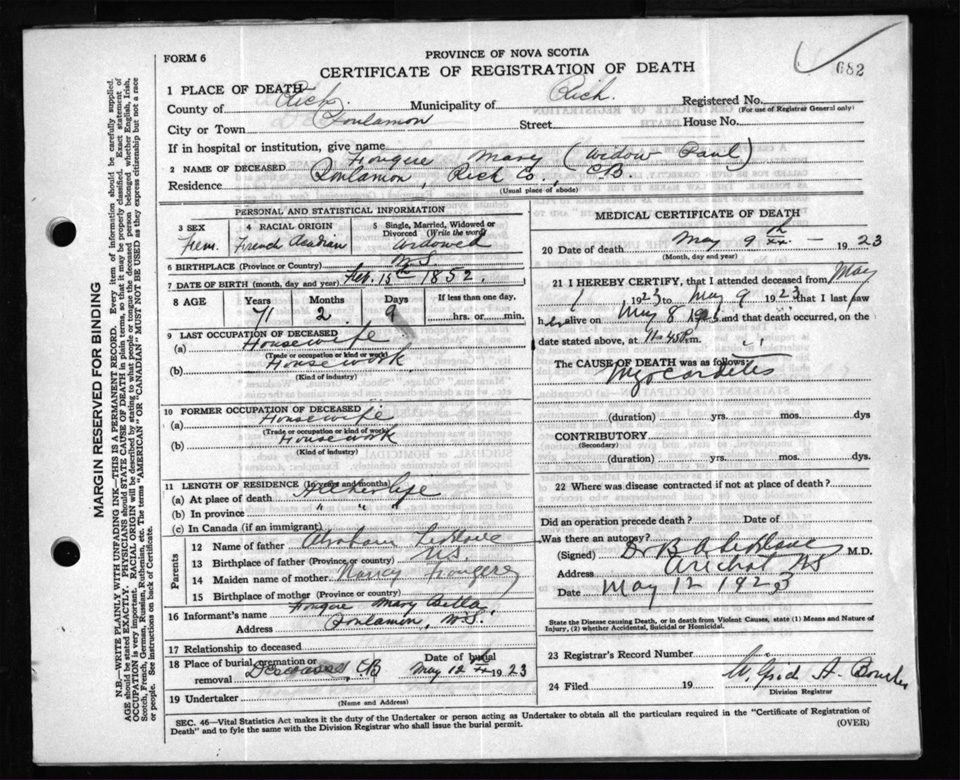 FORM 6
PROVINCE OF NOVA SCOTIA
CERTIFICATE OF REGISTRATION OF DEATH
682
1 PLACE OF DEATH
County of Rich. Municipality of Rich. Registered No.
(For use of Registrar General only)
City or Town Poulamon Street House No.
If in hospital or institution, give name
2 NAME OF DECEASED Fougere Mary (widow Paul)
Residence Poulamon, Rich Co., CB.
(Usual place of abode)
PERSONAL AND STATISTICAL INFORMATION
3 SEX 4 RACIAL ORIGIN 5 Single, Married, Widowed or Divorced (Write the word)
Fem. French Acadian Widowed
6 BIRTHPLACE (Province or Country) N.S.
7 DATE OF BIRTH (month, day and year) Feb. 15th 1852.
8 AGE Years Months Days If less than one day,
71 2 9 hrs. or min.
9 LAST OCCUPATION OF DECEASED
(a) Housewife
(Trade or occupation or kind or work)
(b) Housework
(Kind of industry)
10 FORMER OCCUPATION OF DECEASED
(a) Housewife
(Trade or occupation or kind of work)
(b) Housework
(Kind of industry)
11 LENGTH OF RESIDENCE (In years and months)
(a) At place of death All her life
(b) In province " " "
(c) In Canada (if an immigrant)
Parents
12 Name of father Abraham LeBlanc
13 Birthplace of father (Province or country) N.S.
14 Maiden name of mother Nancy Fougere
15 Birthplace of mother (Province or Country)
16 Informant's name Fougere Mary Bella
Address Poulamon, N.S.
17 Relationship to deceased
18 Place of burial, cremation or removal Descousse, C.B Date of burial May 12th 1923
19 Undertaker
(Name and Address)
MEDICAL CERTIFICATE OF DEATH
20 Date of death May 9th — 1923
(Month, day and year)
21 I HEREBY CERTIFY, that I attended deceased from May
1, 1923 to May 9 1923 that I last saw
her alive on May 8 and that death occurred, on the
date stated above, at 11.45 P.m.
The CAUSE OF DEATH was as follows:
Myocarditis
(duration) yrs. mos. dys
CONTRIBUTORY
(Secondary)
(duration) yrs. mos. dys.
22 Where was disease contracted if not at place of death?
Did an operation precede death? Date of
Was there an autopsy?
(Signed) Dr B A LeBlanc M.D.
Address Arichat NS
Date May 12 1923
State the Disease causing Death, or in death from Violent Causes, state (1) Means and Nature of Injury, (2) whether Accidental, Suicidal or Homicidal.
23 Registrar's Record Number
24 Filed 19
Division Registrar
SEC. 46—Vital Statistics Act makes it the duty of the Undertaker or person acting as Undertaker to obtain all the particulars required in the "Certificate of Registration of
Death" and to fyle the same with the Division Registrar who shall issue the burial permit. (OVER)
MARGIN RESERVED FOR BINDING
N.B.—WRITE PLAINLY WITH UNFADING INK—THIS IS A PERMANENT RECORD. Every item of information should be carefully supplied.
AGE should be stated EXACTLY. PHYSICIANS should STATE CAUSE OF DEATH in plain terms, so that it may be properly classified. Exact statement of
OCCUPATION is very important. RACIAL ORIGIN will be described by stating to what people or tongue the deceased person belonged whether English, Irish,
Scotch, French, German, Russian, Ruthenian, etc. The terms "AMERICAN" or "CANADIAN" MUST NOT BE USED as they express citizenship but not a race
or people. See instructions on back of Certificate.